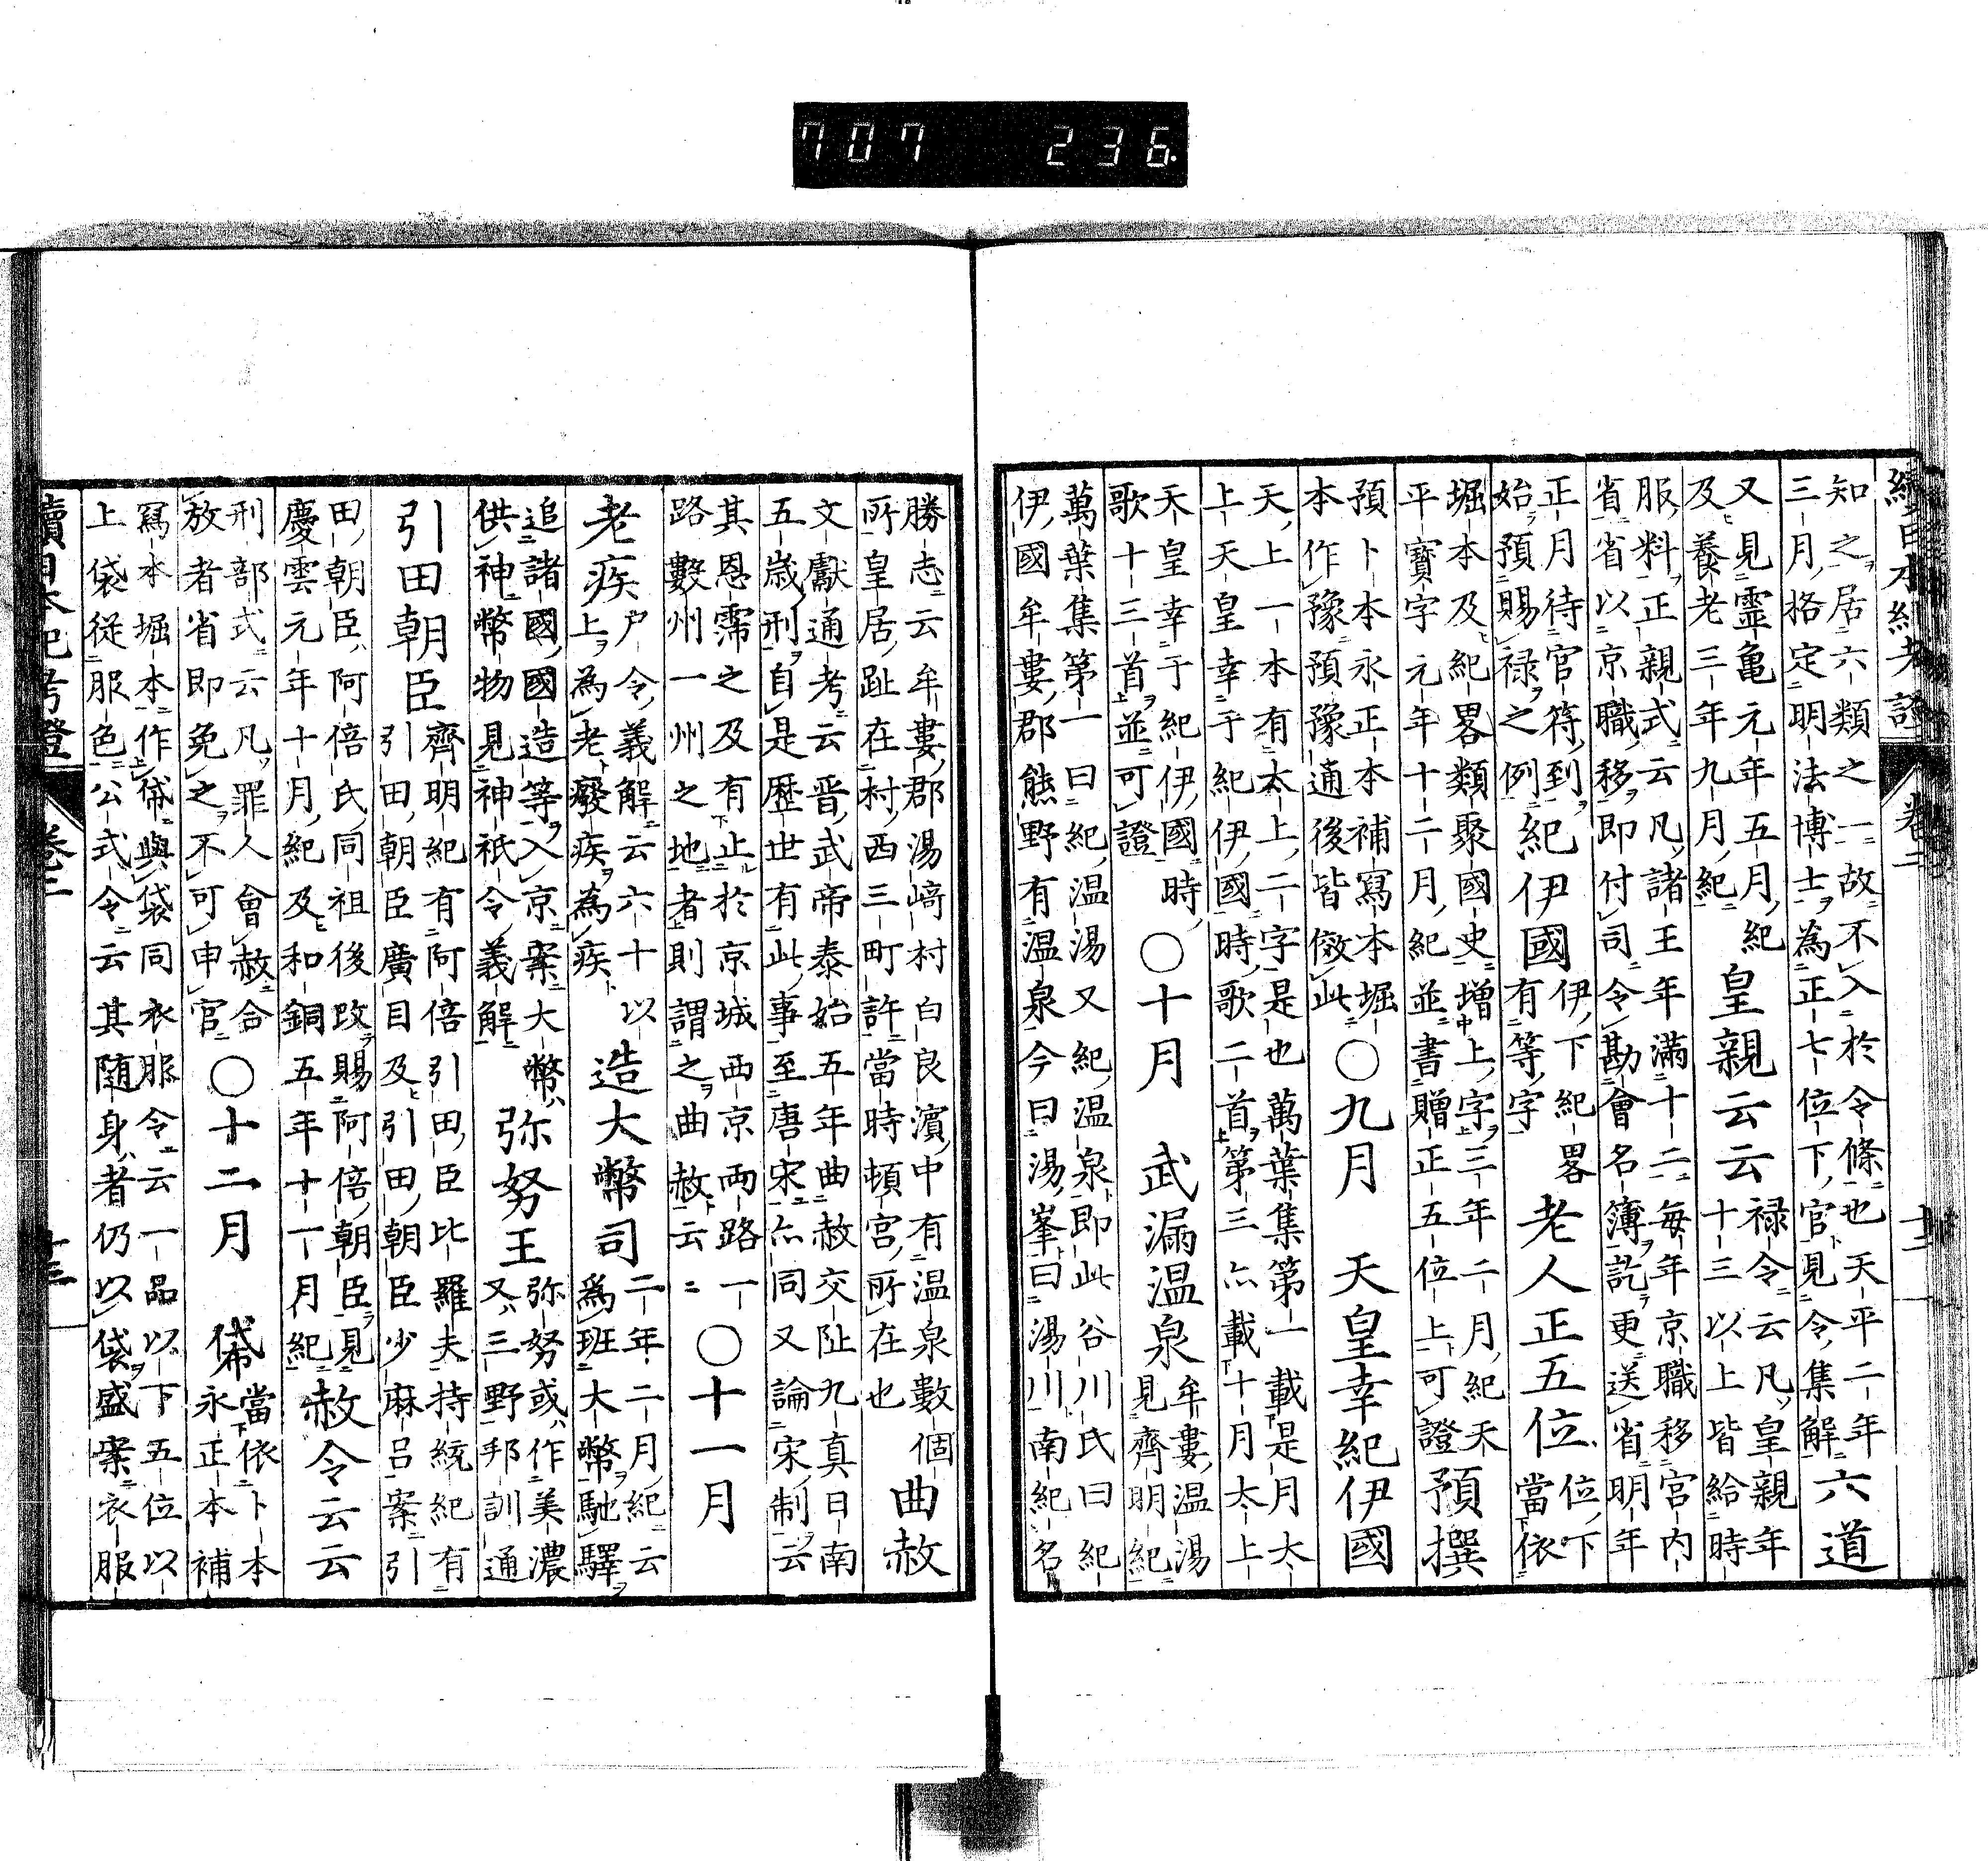 707 236.
續日本紀考證 卷二 十二
知之居六類之一故不入於令條也天平二年
三月格定明法博士為正七位下官見令集解 六道
又見霊亀元年五月紀
及養老三年九月紀 皇親云云 禄令云凡皇親年
十三以上皆給時
服料正親式云凡諸王年滿十二毎年京職移宮内
省省以京職移即付司令勘會名簿訖更送省明年
正月待官符到
始預賜禄之例 紀伊國 伊下紀畧
有等字 老人正五位 位下
當依
堀本及紀畧類聚國史增上字三年二月紀天
平寶字元年十二月紀並書贈正五位上可證 預撰
預卜本永正本補寫本堀
本作豫預豫通後皆倣此 ○九月 天皇幸紀伊國
天上一本有太上二字是也萬葉集第一載是月太
上天皇幸于紀伊國時歌二首第三亦載十月太上
天皇幸于紀伊國時
歌十三首並可證 ○十月 武漏温泉 牟婁温湯
見齊明紀
萬葉集第一曰紀温湯又紀温泉即此谷川氏曰紀
伊國牟婁郡熊野有温泉今曰湯峯曰湯川南紀名
勝志云牟婁郡湯﨑村白良濱中有温泉數個
所皇居趾在村西三町許當時頓宮所在也 曲赦
文獻通考云晋武帝泰始五年曲赦交阯九真日南
五歳刑自是歴世有此事至唐宋亦同又論宋制云
其恩霈之及有止於京城西京両路一
路數州一州之地者則謂之曲赦云云 ○十一月
老疾 戸令義解云六十以
上為老癈疾為疾 造大幣司 二年二月紀云
為班大幣馳驛
追諸國國造等入京案大幣
供神幣物見神祇令義解 弥努王 弥努或作美濃
又三野邦訓通
引田朝臣 齊明紀有阿倍引田臣比羅夫持統紀有
引田朝臣廣目及引田朝臣少麻呂案引
田朝臣阿倍氏同祖後改賜阿倍朝臣見
慶雲元年十月紀及和銅五年十一月紀 赦令云云
刑部式云凡罪人會赦合
放者省即免之不可申官 ○十二月 帒 當依卜本
永正本補
寫本堀本作帒與袋同衣服令云一品以下五位以
上袋從服色公式令云其随身者仍以袋盛案衣服
續日本紀考證 卷二 十三